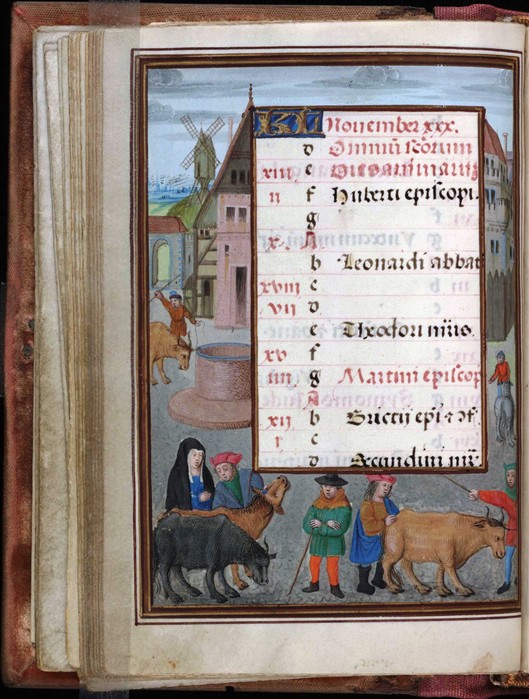 KL Nouember xxx.
d Omniū sctorum
xiii e
ii f Huberti episcopi.
g
x A
b Leonardi abbat
xviii c
vii d
e Theodori mris.
xv f
iiii g Martini episcop
A
xii b Brictij epi & ɔf.
i c
d Secundini mr.